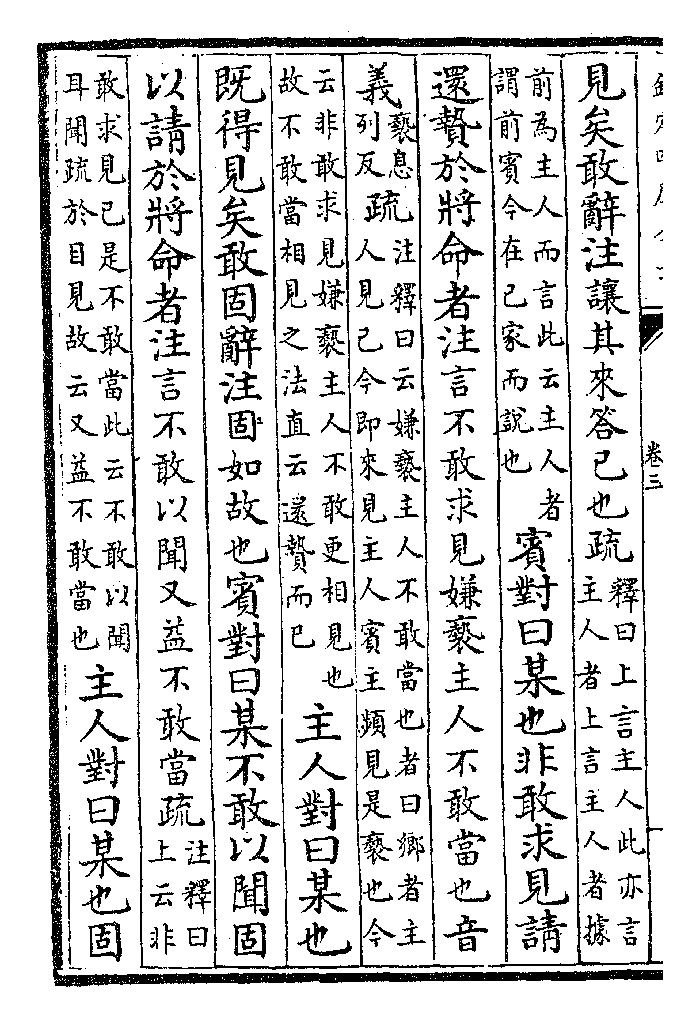 卷三
見矣敢辭注讓其來答已也疏釋曰上言主人此亦言主人者上言主人者據
前為主人而言此云主人者謂前賓今在已家而說也賓對曰某也非敢求見請
還贄於將命者注言不敢求見嫌褻主人不敢當也音
義褻息列反疏注釋曰云嫌褻主人不敢當也者曰鄉者主人見已今即來見主人賓主頻見是褻也今
云非敢求見嫌褻主人不敢更相見也故不敢當相見之法直云還贄而已主人對曰某也
既得見矣敢固辭注固如故也賓對曰某不敢以聞固
以請於將命者注言不敢以聞又益不敢當疏注釋曰上云非
敢求見已是不敢當此云不敢以聞耳聞疏於目見故云又益不敢當也主人對曰某也固